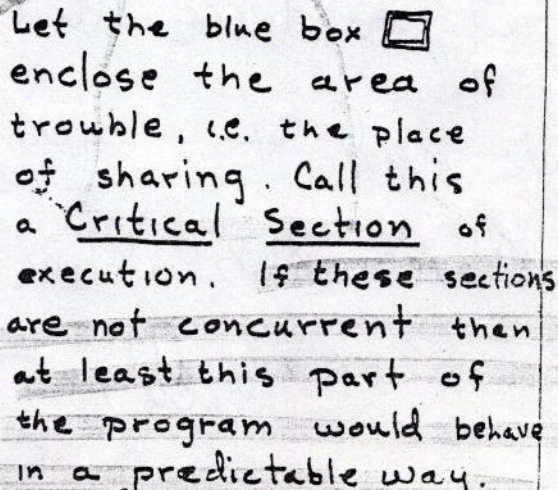 Let the blue box
enclose the area of
trouble, i.e. the place
of sharing. Call this
a Critical Section of
execution. If these sections
are not concurrent then
at least this part of
the program would behave
in a predictable way.